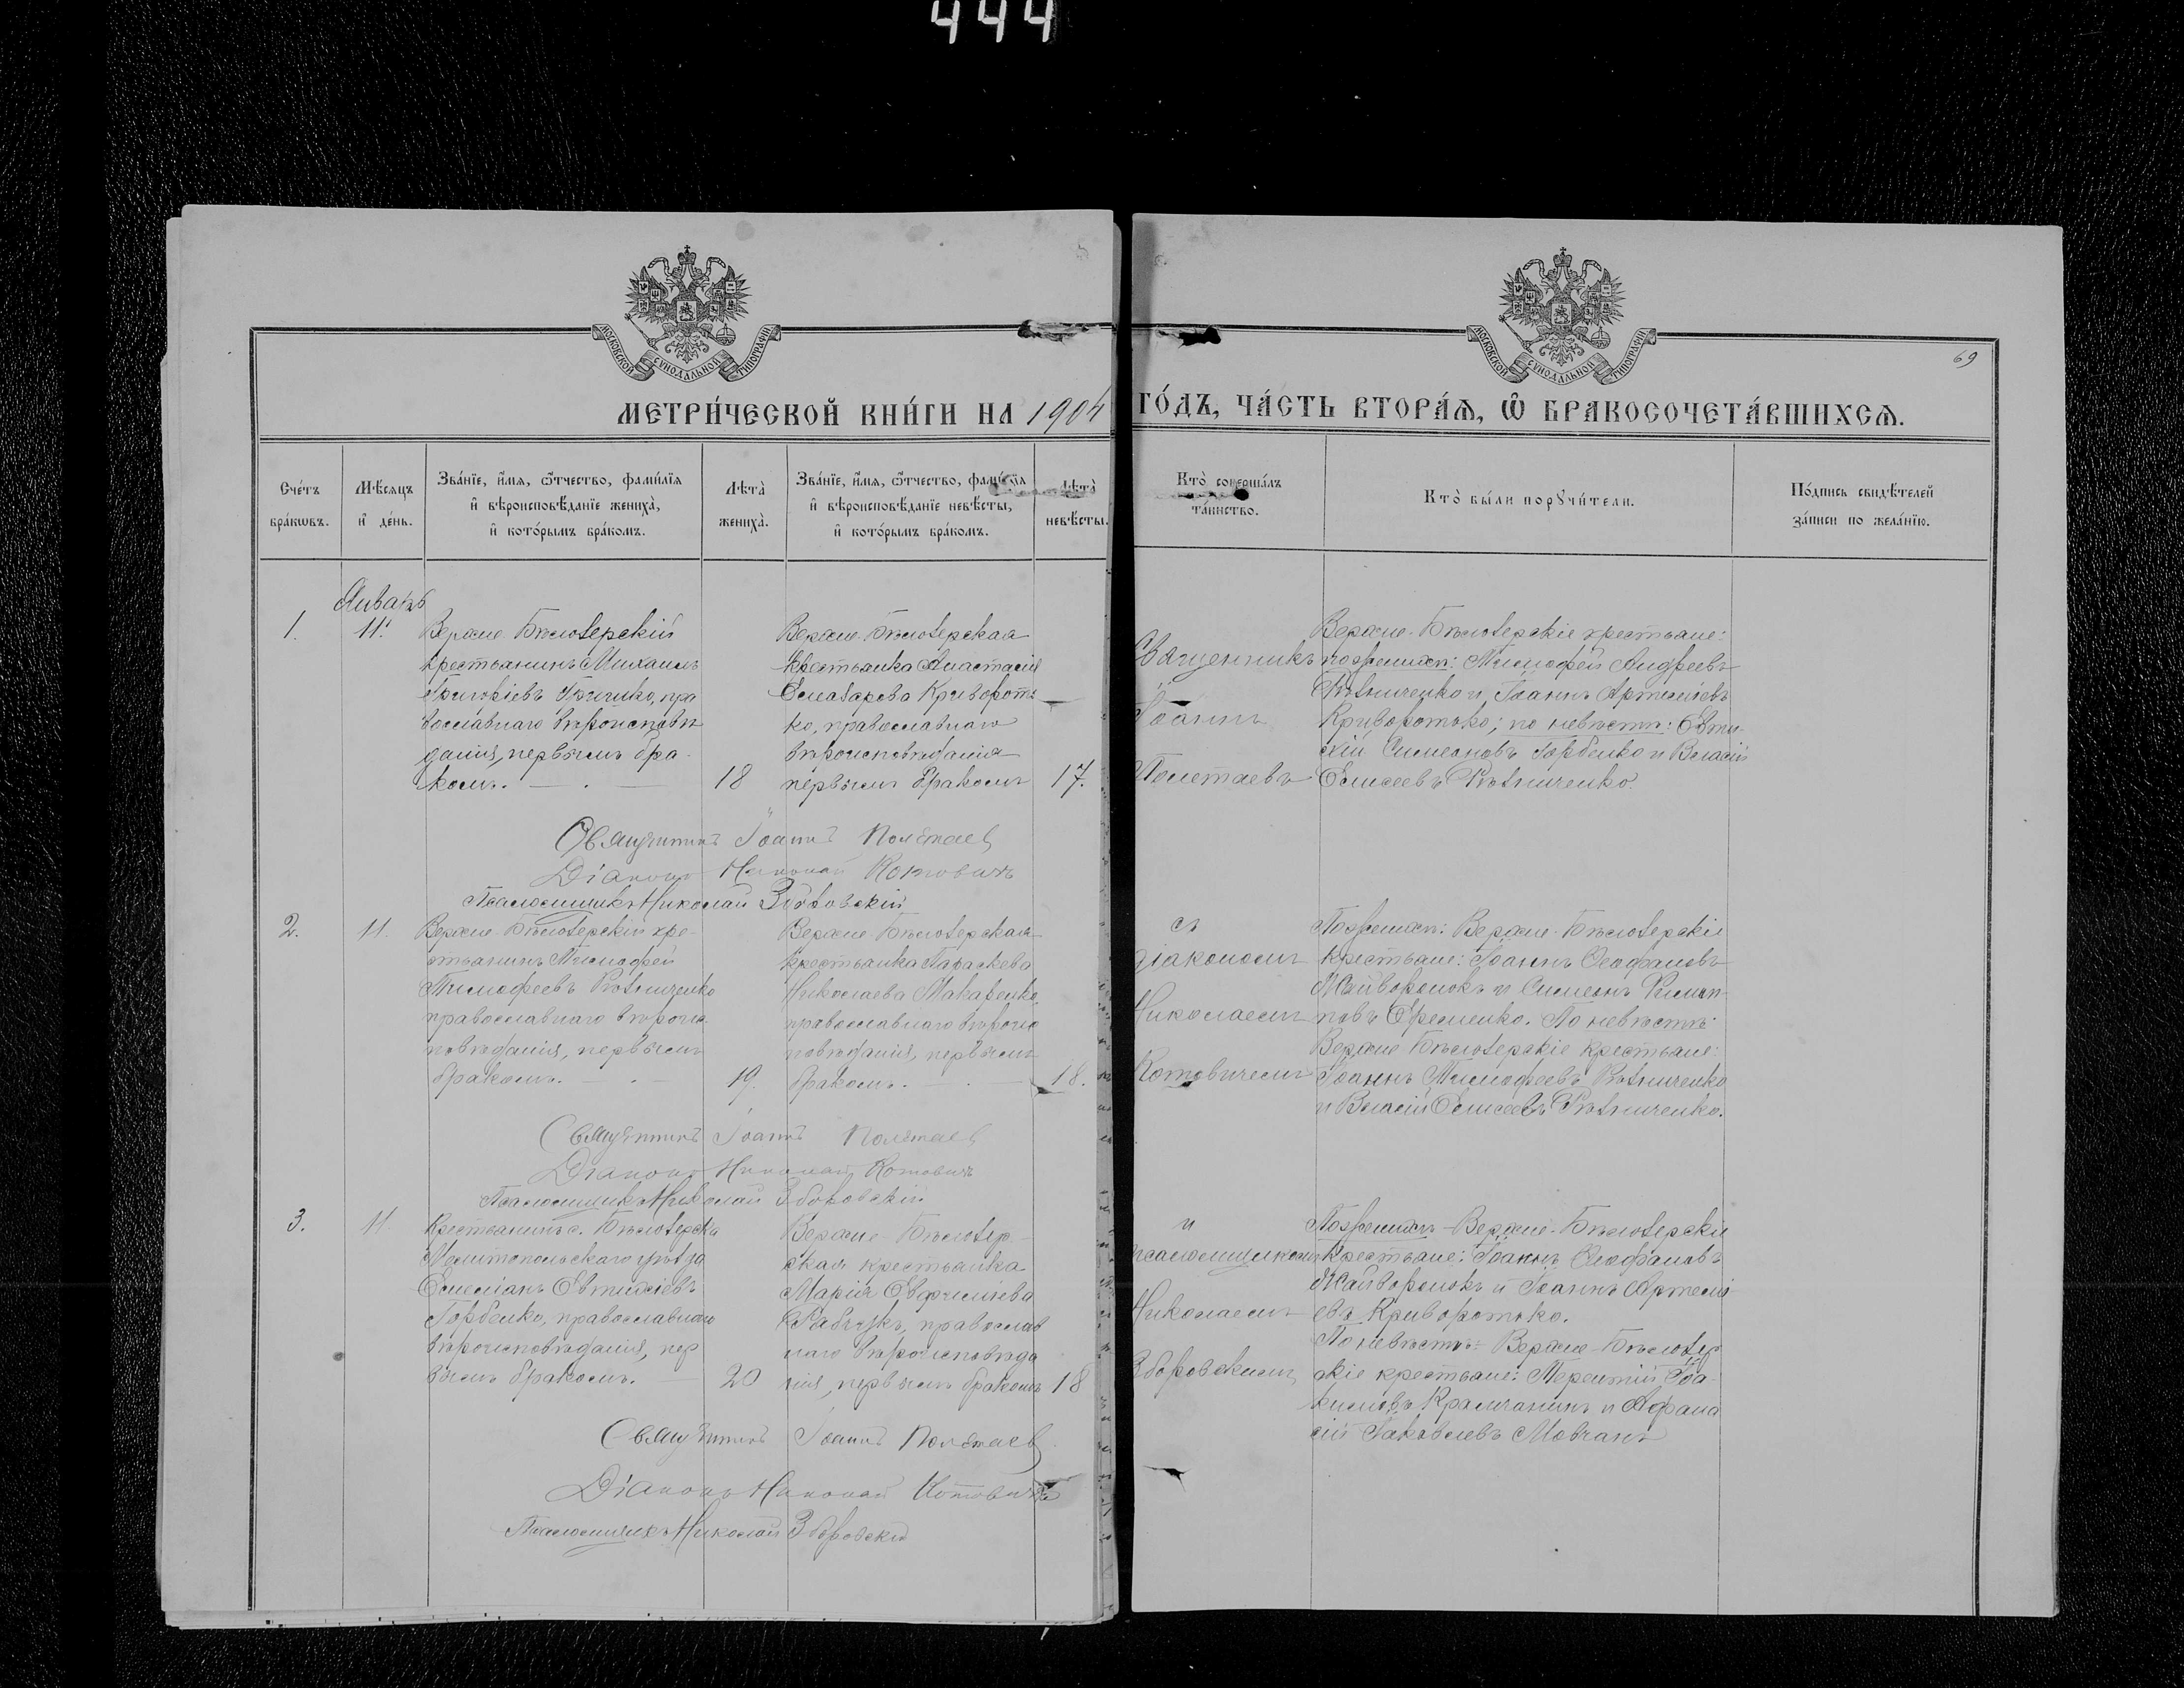 444
МОСКОВСКОЙ СѴНОДАЛЬНОЙ ТИПОГРАФІИ
МОСКОВСКОЙ СѴНОДАЛЬНОЙ ТИПОГРАФІИ
69
МЕТРИ́ЧЕСКОЙ КНИ́ГИ НА 1904 ГО́ДЪ, ЧА́СТЬ ВТОРА́Ѧ, Ѡ҆ БРАКОСОЧЕТА́ВШИХСѦ.
Сче́тъ бра́кѡвъ.
Мѣ́сяцъ и҆ де́нь.
Зва́нїе, и҆́мѧ, ѻ҆́тчество, фами́лїѧ
и҆ вѣроисповѣ́данїе жениха̀,
и҆ кото́рымъ бра́комъ.
Лѣта̀ жениха̀.
Зва́нїе, и҆́мѧ, ѻ҆́тчество, фами́лїѧ
и҆ вѣроисповѣ́данїе невѣ́сты,
и҆ кото́рымъ бра́комъ.
Лѣта̀ невѣ́сты.
Кто̀ соверша́лъ
та́инство.
Кто̀ бы́ли порꙋчи́тели.
По́дпись свидѣ́телей
за́писи по жела́нїю.
Январь
1.
11.
Верхне-Бѣлозерскій
крестьянинъ Михаилъ
Григоріевъ, пра
вославнаго вѣроисповѣ
данія, первымъ бра
комъ.
18
Верхне-Бѣлозерская
крестьянка Анастасія
Елеазарова Криворот
ко, православнаго
вѣроисповѣданія
первымъ бракомъ
17.
Священникъ
Іоаннъ
Полетаевъ
Верхне-Бѣлозерскіе крестьяне:
по женихѣ: Тимофей Андреевъ
Рѣзниченко и Іоаннъ Артеміевъ
Криворотько; по невѣстѣ: Евти-
хій Симеоновъ Горбенко и Власій
Елисеевъ Рѣзниченко.
Священникъ Іоаннъ Полетаев
Діаконъ Николай Котовичъ
Псаломщикъ Николай Зборовскій
2.
11.
Верхне-Бѣлозерскій кре-
стьянинъ Тимофей
Тимофеевъ Рѣзниченко
православнаго вѣроис
повѣданія, первымъ
бракомъ.
19.
Верхне-Бѣлозерская
крестьянка Параскева
Николаева Макаренко,
православнаго вѣроис
повѣданія, первымъ
бракомъ.
18.
съ
діакономъ
Николаемъ
Котовичемъ
По женихѣ: Верхне-Бѣлозерскіе
крестьяне: Іоаннъ Феофановъ
Жайворонокъ и Симеонъ Филип-
повъ Еременко. По невѣстѣ:
Верхне Бѣлозерскіе крестьяне:
Іоаннъ Тимофеевъ Рѣзниченко
и Власій Елисеевъ Рѣзниченко.
Священникъ Іоаннъ Полетаев
Діаконъ Николай Котовичъ
Псаломщикъ Николай Зборовскій
3.
11.
Крестьянинъ с. Бѣлозерска
Мелитопольскаго уѣзда
Емеліанъ Евтихіевъ
Горбенко, православнаго
вѣроисповѣданія, пер
вымъ бракомъ.
20
Верхне-Бѣлозер-
ская крестьянка
Марія Евфиміева
Рабчукъ, православ
наго вѣроисповѣда
нія, первымъ бракомъ
18
и
псаломщикомъ
Николаемъ
Зборовскимъ
По женихѣ - Верхне-Бѣлозерскіе
крестьяне: Іоаннъ Феофановъ
Жайворонокъ и Іоаннъ Артемі
евъ Криворотько.
По невѣстѣ: Верхне-Бѣлозер
скіе крестьяне: Терентій Іоа
кимовъ и Афана
сій Іаковлевъ Мовчанъ
Священникъ Іоаннъ Полетаев
Діаконъ Николай Котовичъ
Псаломщикъ Николай Зборовскій